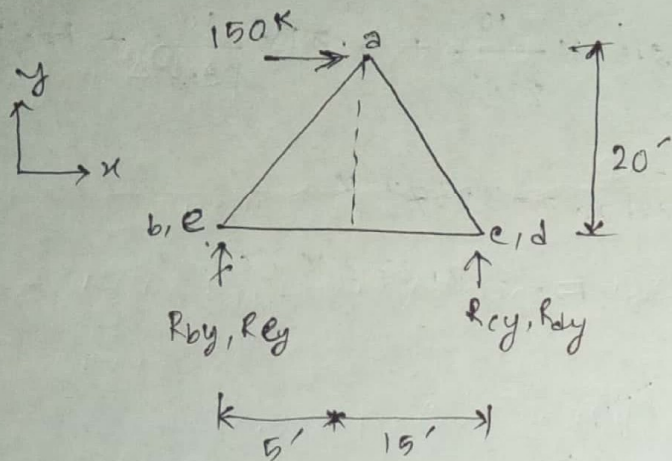 150K
a
y
x
20'
b, e
c, d
Rby, Rey
Rcy, Rdy
5'
15'